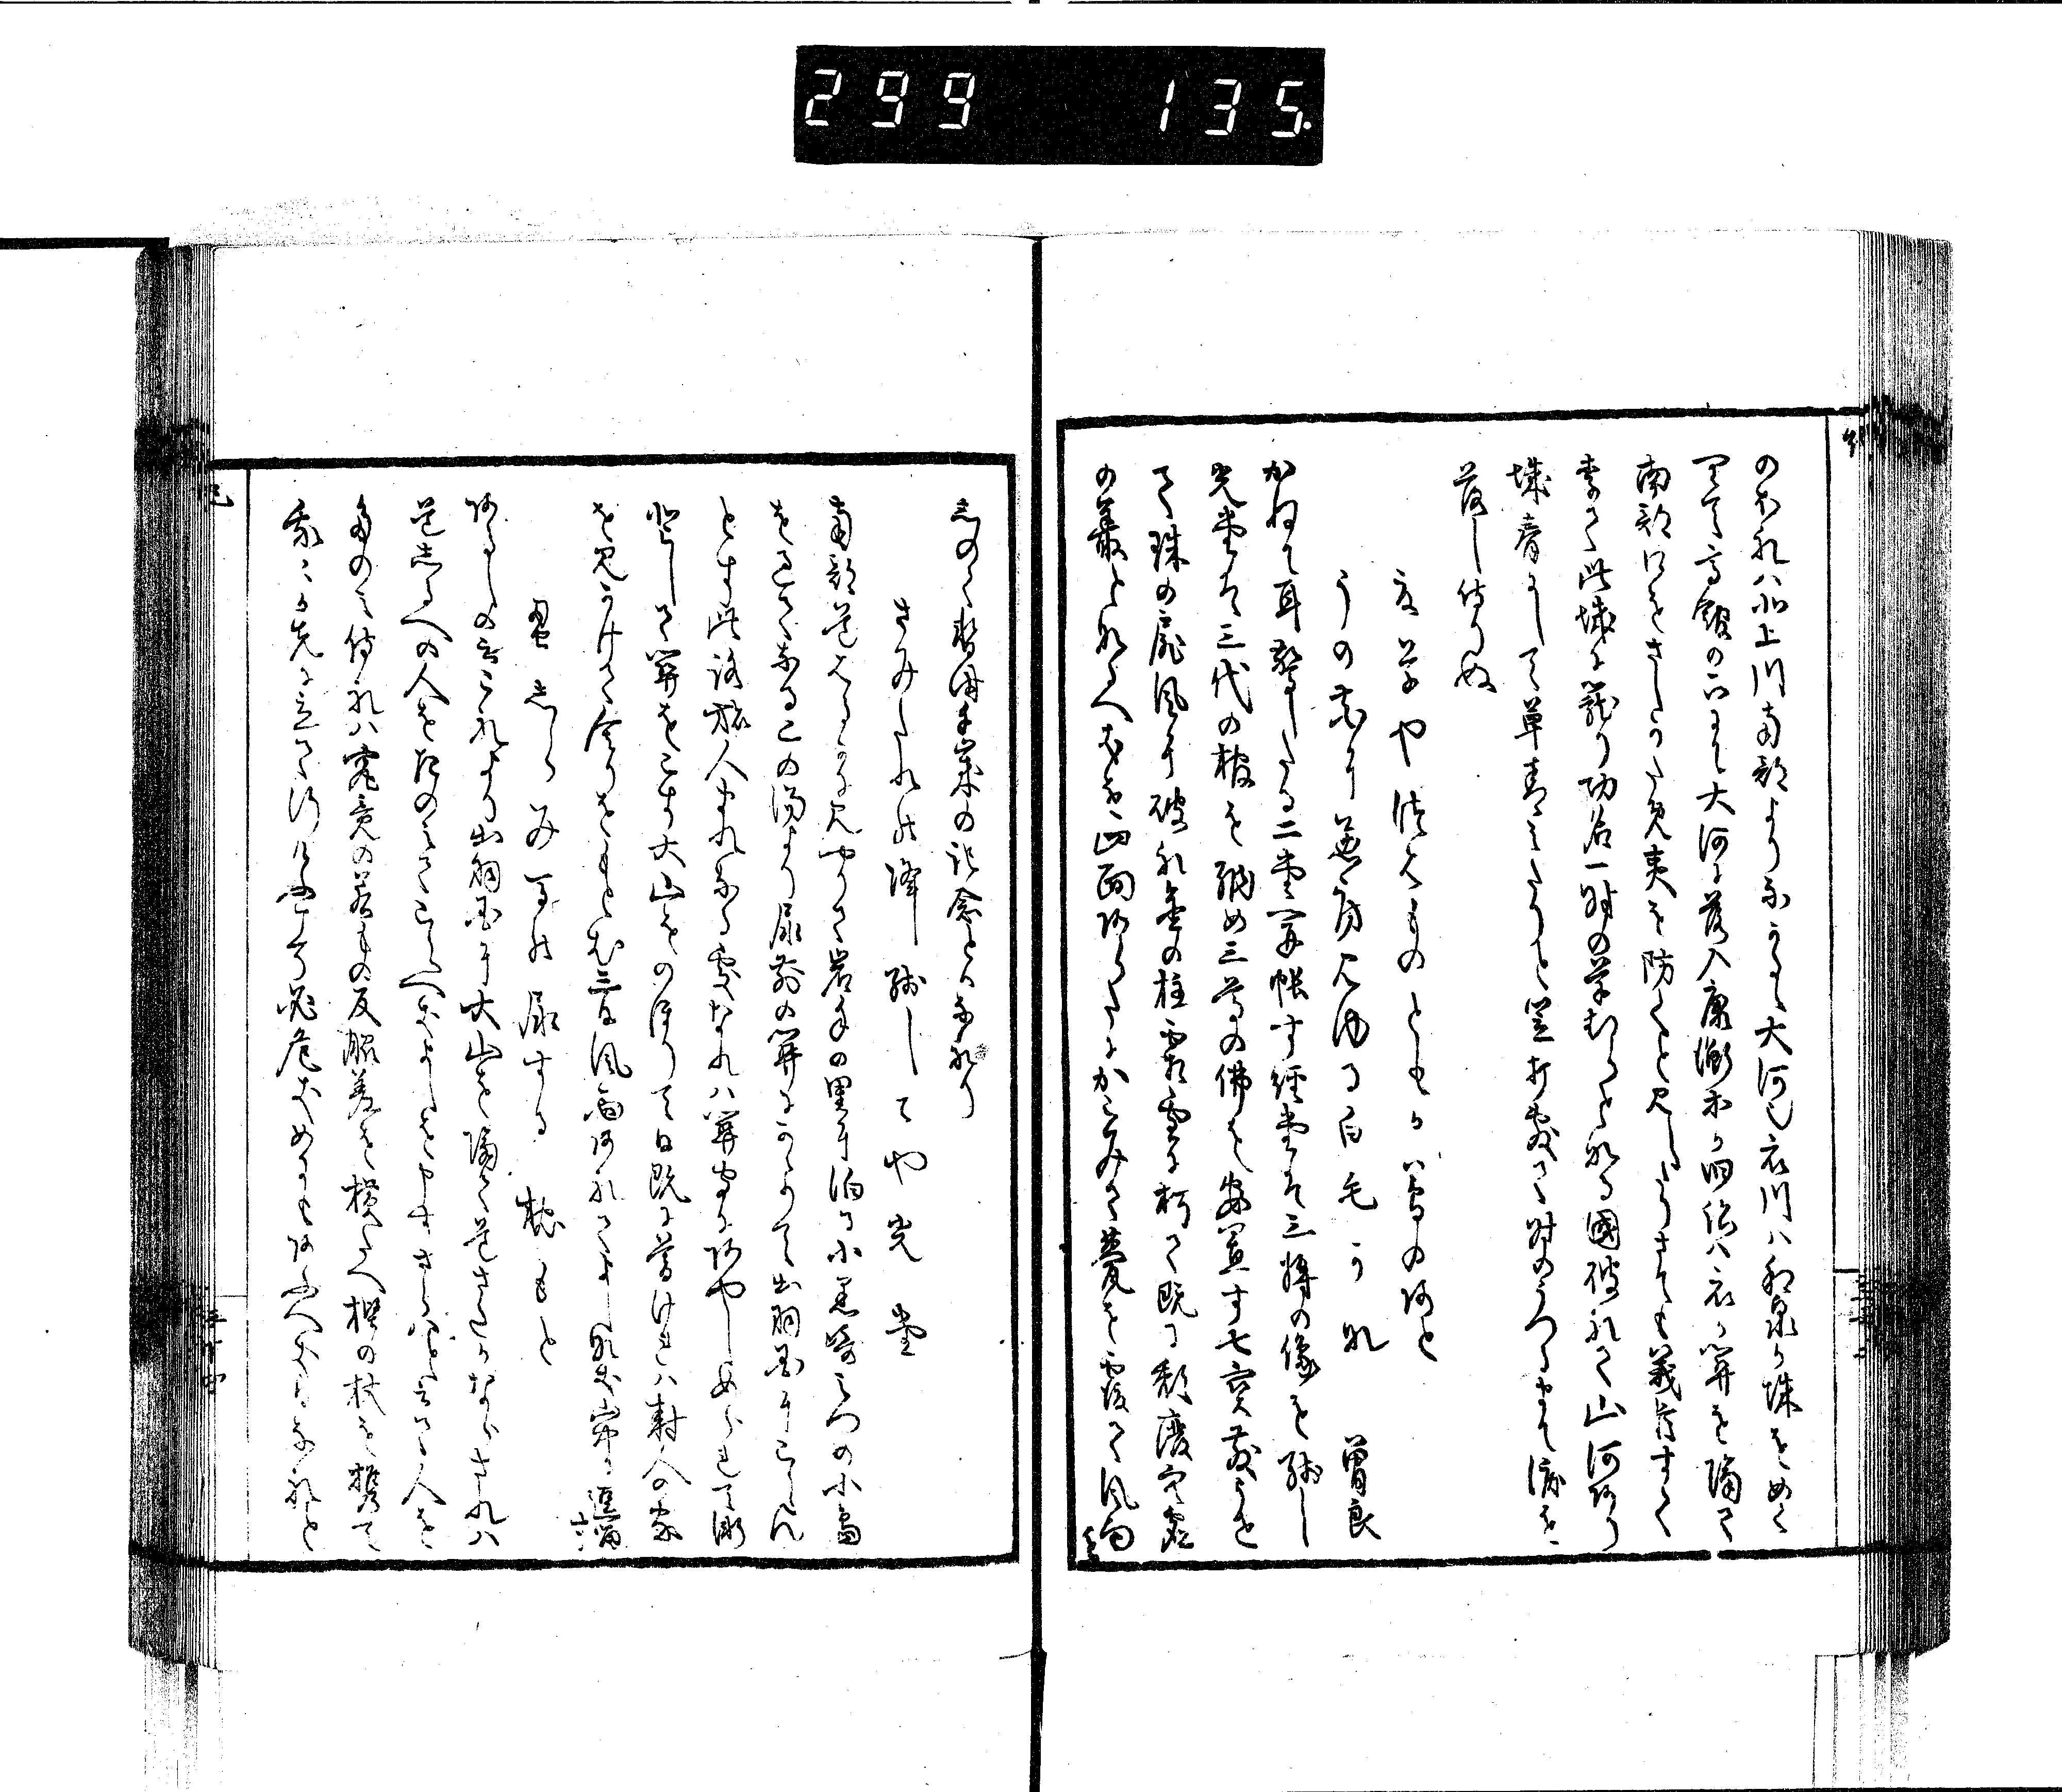 299 135.
のほれハ北上川南部よりなかるゝ大河也衣川ハ和泉か城をめく
りて高館の下にて大河に落入康衡等か旧跡ハ衣か関を隔て
南部口をさしかため夷を防くと見へたりさても義臣すくつ
て此城に籠り功名一時の草むらとなる国破れて山河あり
城春にして草青ミたりと笠打敷て時のうつるまて泪を
落し侍りぬ
夏草や兵とものともか夢のあと
うの花に兼房見ゆる白毛かな 曽良
かねて耳驚したる二堂開帳す経堂ハ三将の像を残し
光堂ハ三代の棺を納め三尊の佛を安置す七宝散うせ
て珠の扉風に破れ金の柱霜雪に朽て既に頽廃空虚
の叢となるへきを四面あらたにかこみて甍を覆て風雨
しのく暫時千歳の記念とハなれり
さみたれの降残してや光堂
南部道はるかに見やりて岩手の里に泊る小黒崎ミつの小嶋
を過てなるこの湯より尿前の関にかゝりて出羽国にこえん
とす此路旅人まれなる處なれハ関守にあやしめられて漸
として関をこす大山をのほりて日既に暮けれハ封人の家
を見かけて舎りをもとむ三日風雨あれてよしなき山中に逗留ス
蚤しらみ馬の尿する枕もと
あるしの云これより出羽国に大山を隔て道さたかならされハ
道しるへの人をたのミてこゆへきよしを申すさらハと云て人を
たのミ侍れハ究竟の若もの反脇差を横たへ樫の杖を携て
我々か先に立て行けふこそ必危きめにもあふへき日なれと